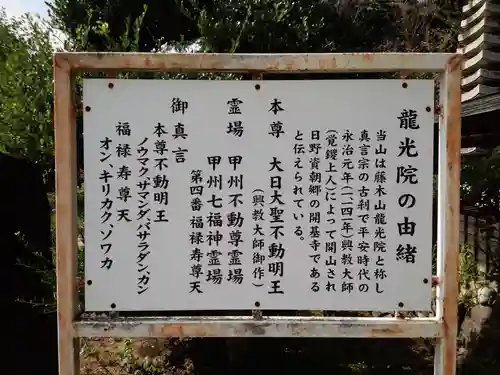 龍光院の由緒
当山は藤木山龍光院と称し
真言宗の古刹で平安時代の
永治元年(一一四一年)興教大師
(覚鑁上人)によって開山され
日野資朝郷の開基寺である
と伝えられている。
本尊 大日大聖不動明王
(興教大師御作)
霊場 甲州不動尊霊場
甲州七福神霊場
第四番福禄寿尊天
御真言
本尊不動明王
ノウマクサマンダ、バサラダン、カン
福禄寿尊天
オン、キリカク、ソワカ